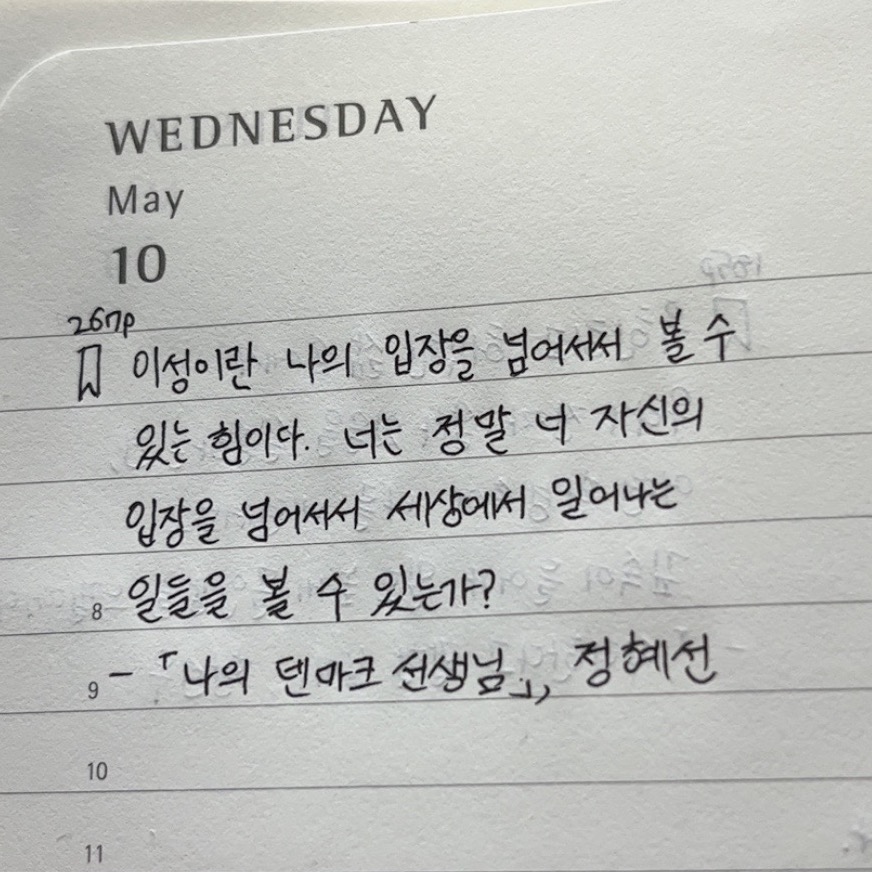 WEDNESDAY
May
10
267p
이성이란 나의 입장을 넘어서서 볼 수
있는 힘이다. 너는 정말 너 자신의
입장을 넘어서서 세상에서 일어나는
8 일들을 볼 수 있는가?
9 - 「나의 덴마크 선생님」, 정혜선
10
11